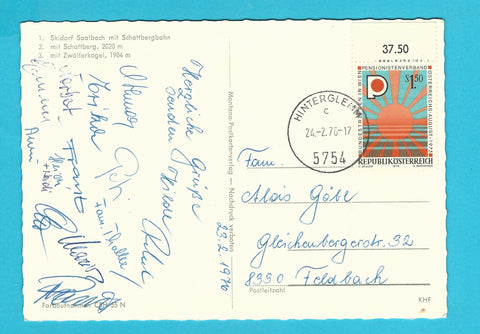 1. Skidorf Saalbach mit Schattbergbahn
2. mit Schattberg, 2020 m
3. mit Zwölferkogel, 1984 m
Herzliche Grüße
senden
Hilde
23.2.1976
Erika
Franz
Fam. Thaller
Heidi
Anni
Farbaufnahme:
Martina-Postkartenverlag — Nachdruck verboten
37.50
PENSIONISTENVERBAND
ÖSTERREICHS
S 1.50
REPUBLIK ÖSTERREICH
HINTERGLEMM
c
24.-2.76-17
5754
Fam.
Alois Göbe
Gleichenbergerstr. 32
8330 Feldbach
Postleitzahl
KHF